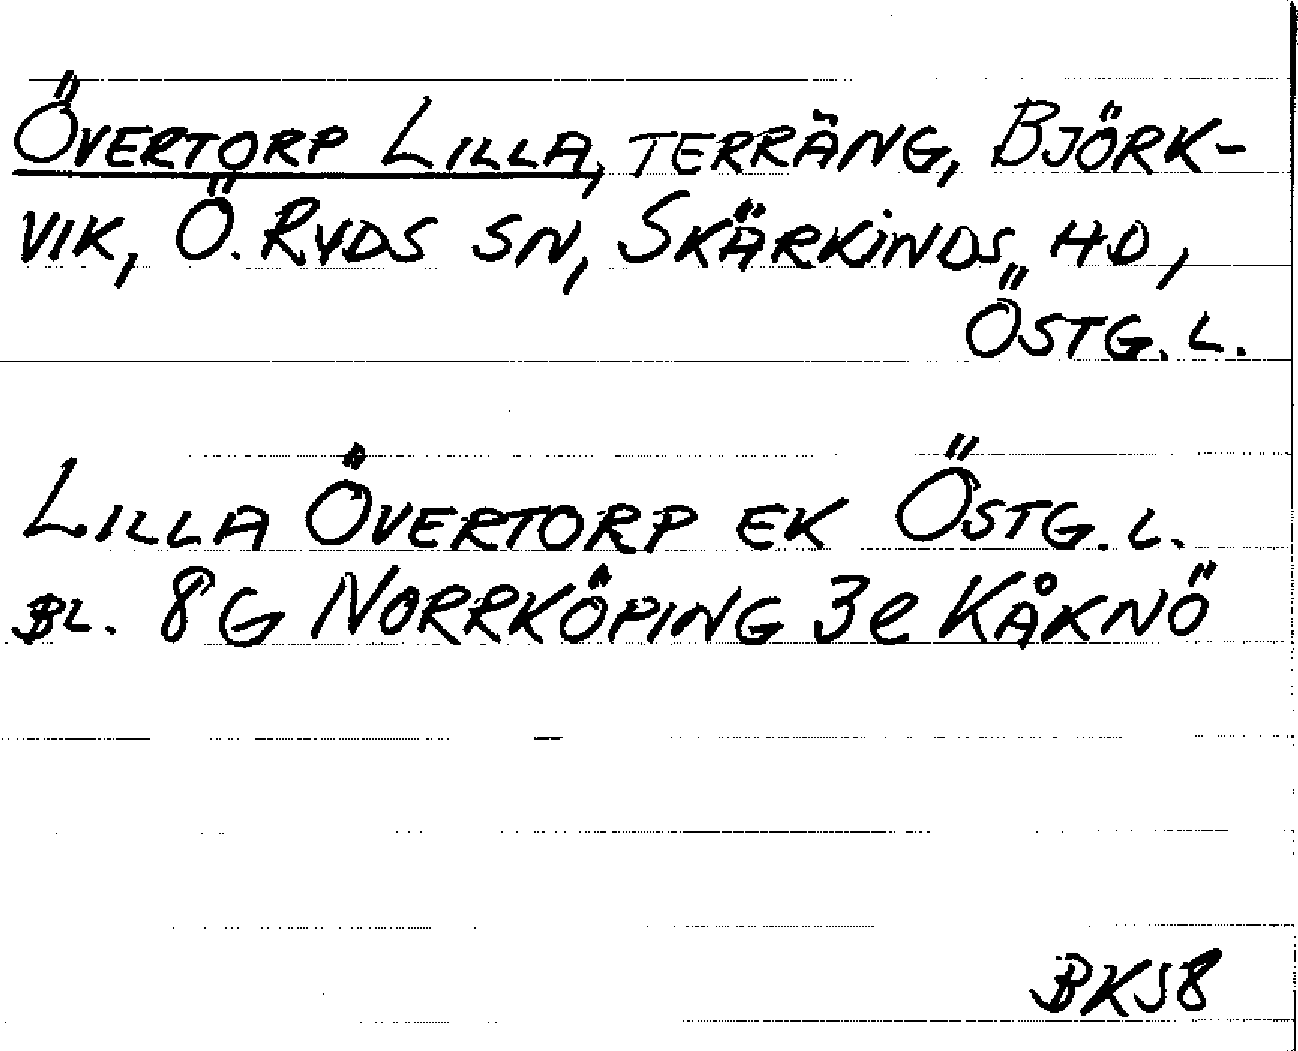 ÖVERTORP LILLA, TERRÄNG, BJÖRK-
VIK, Ö. RYDS SN, SKÄRKINDS HD,
ÖSTG. L.
LILLA ÖVERTORP EK ÖSTG. L.
BL. 8G NORRKÖPING 3e KÅKNÖ
BK58